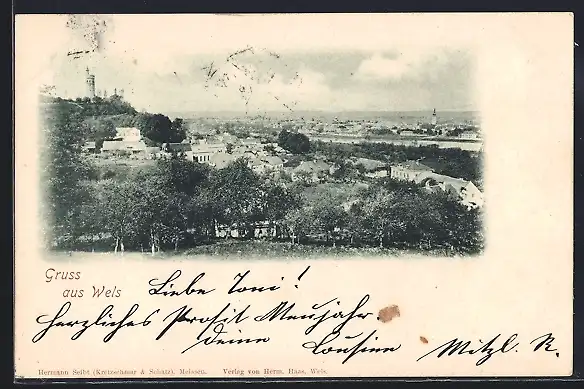 Gruss
aus Wels
Liebe Toni!
Herzliches Prosit Neujahr
deine Cousine Mitzl. R.
Hermann Seibt (Kretzschmar & Schatz), Meissen. Verlag von Herm. Haas, Wels.